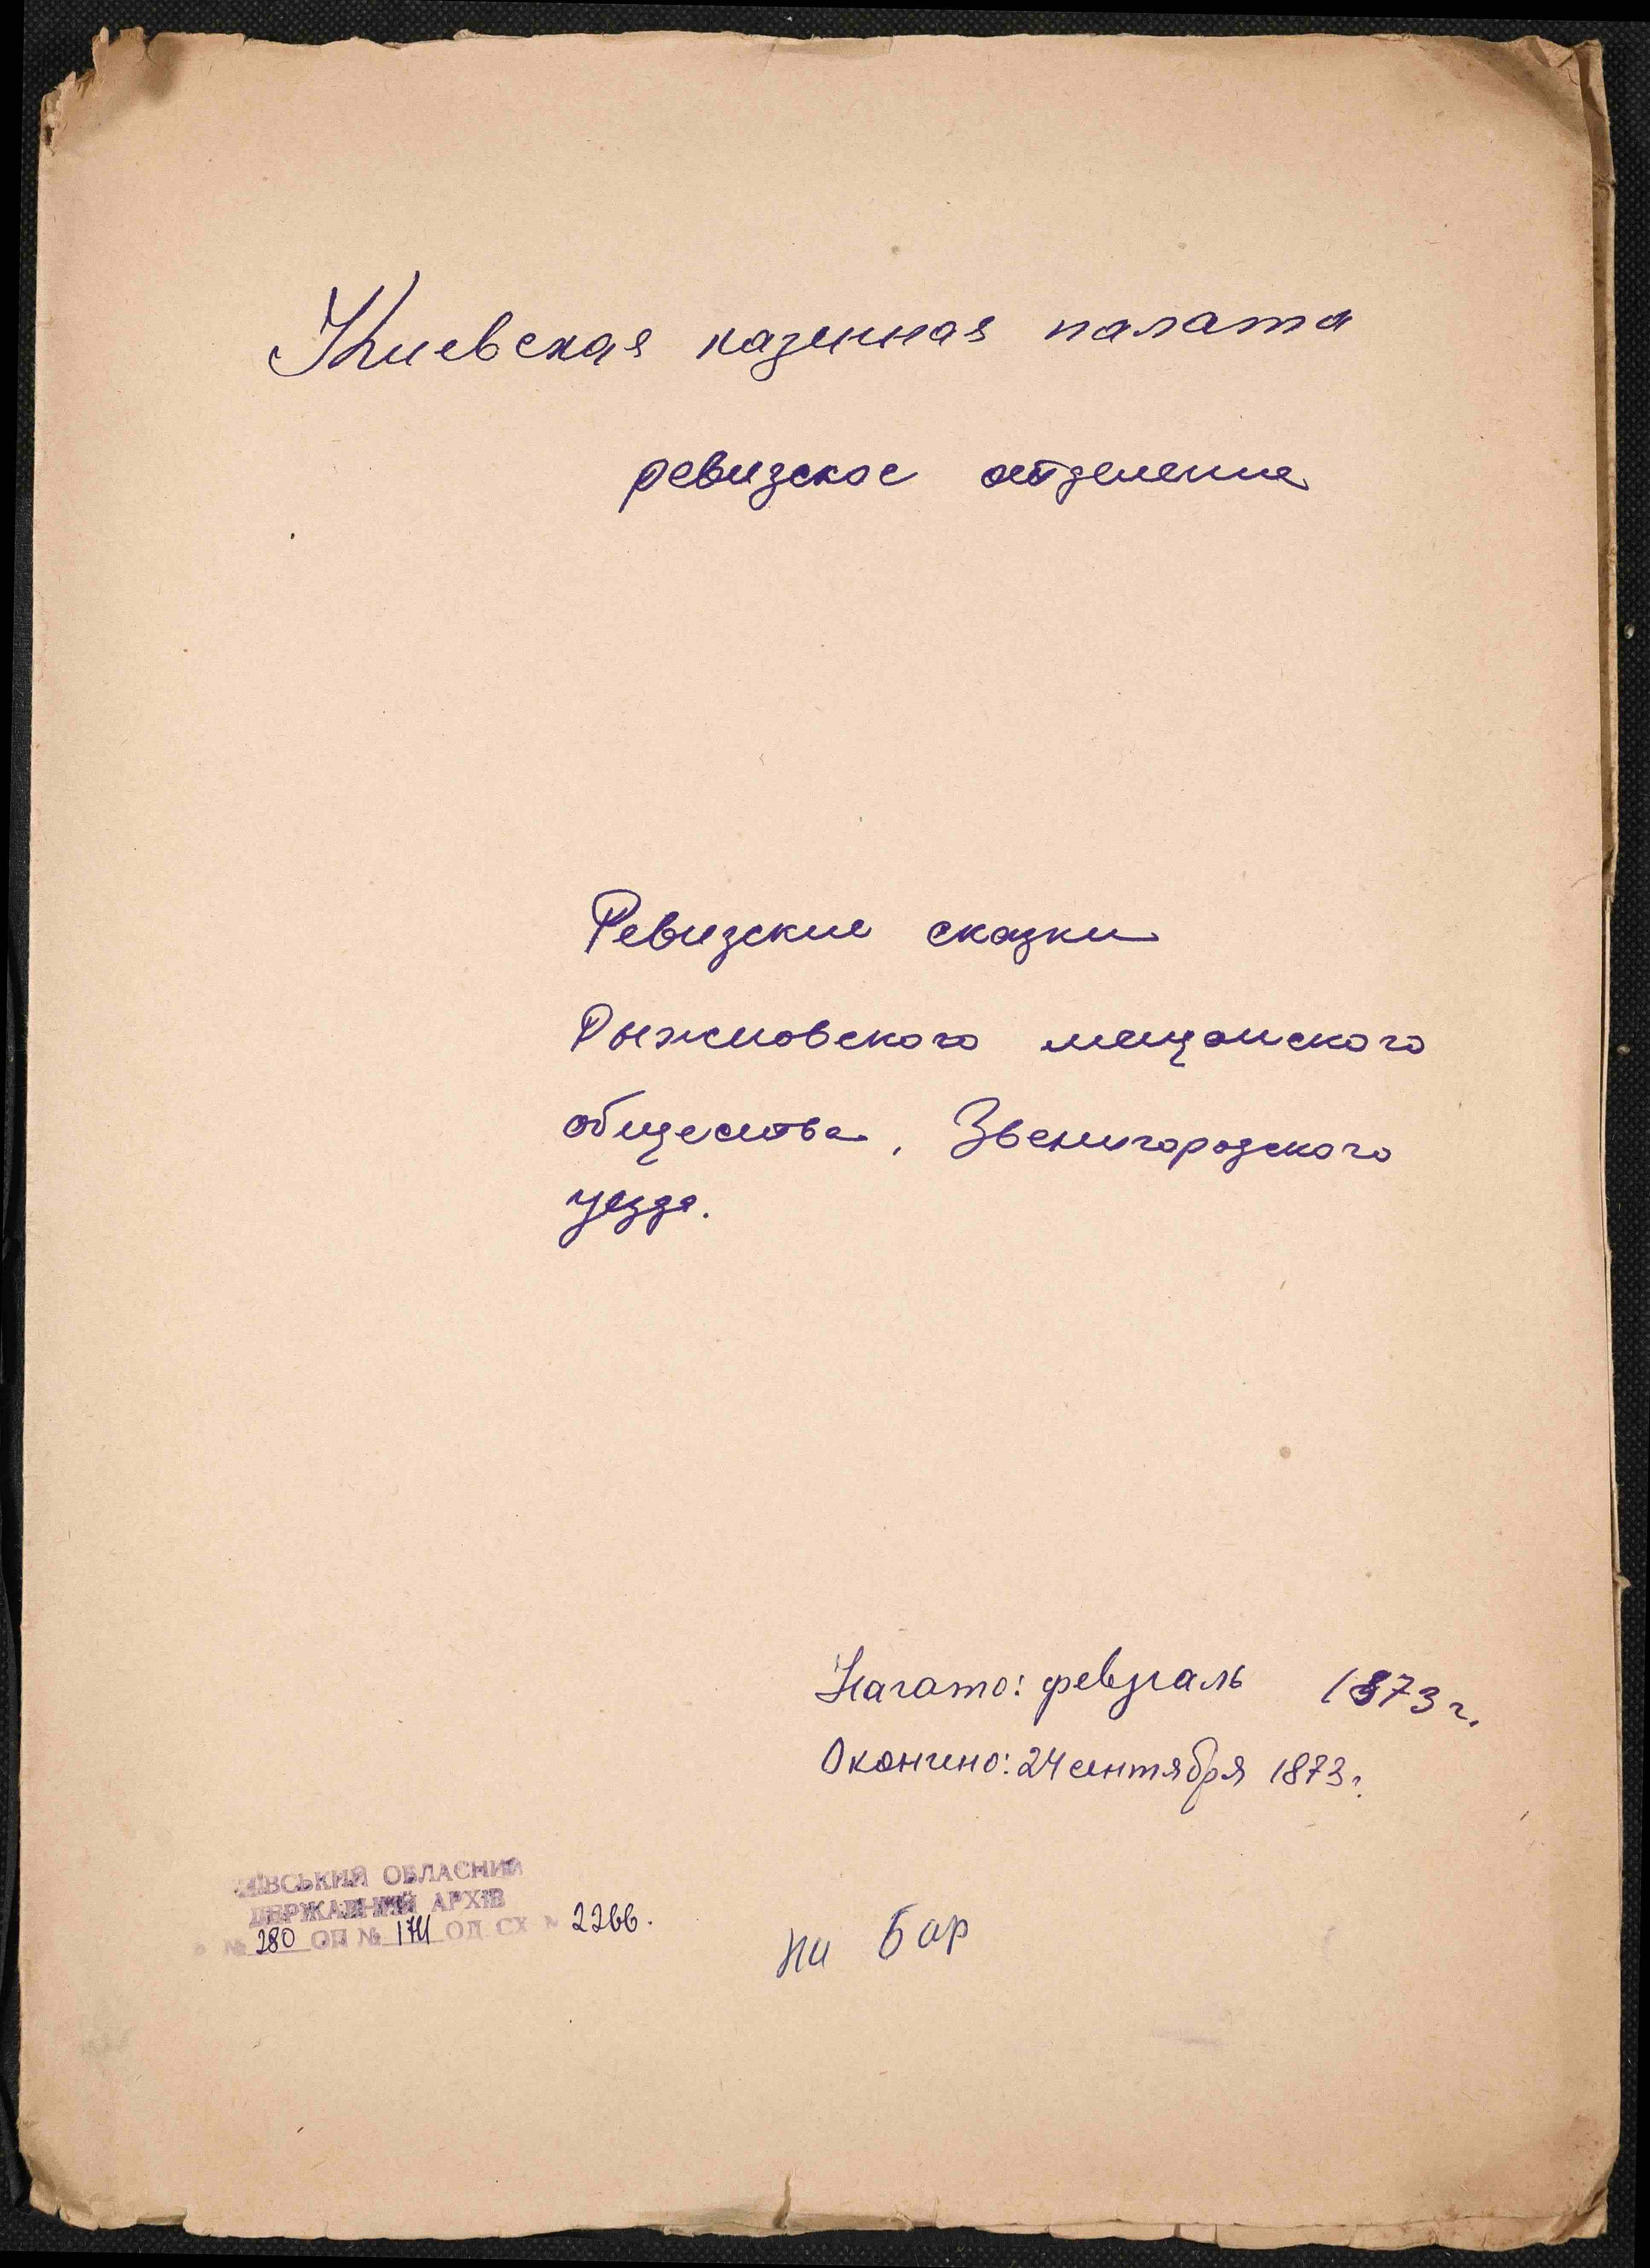 Киевская казенная палата
ревизское отделение
Ревизские сказки
Рыжановского мещанского
общества, Звенигородского
уезда.
Начато: февраль 1873 г.
Окончено: 24 сентября 1873 г.
КИЇВСЬКИЙ ОБЛАСНИЙ
ДЕРЖАВНИЙ АРХІВ
№ 280 ОП № 174 ОД. СХ № 2266.